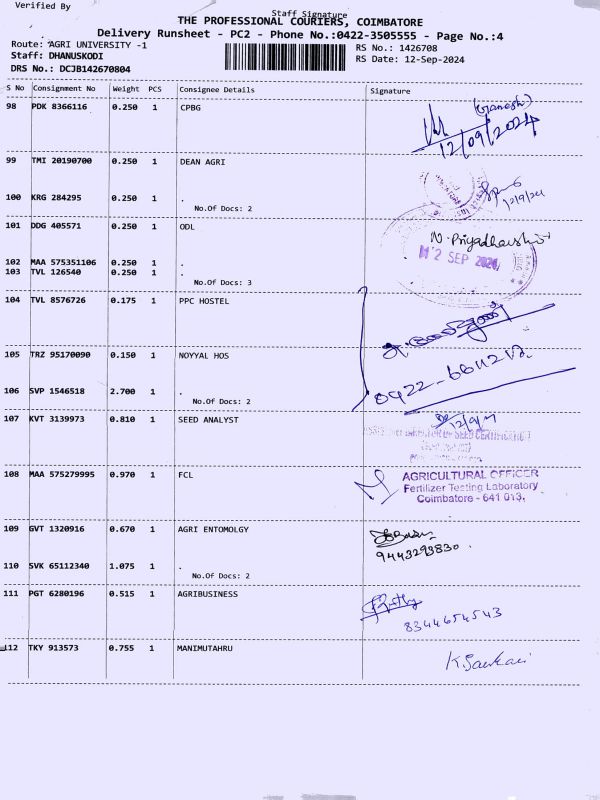 Verified By
Staff Signature
THE PROFESSIONAL COURIERS, COIMBATORE
Delivery Runsheet - PC2 - Phone No.:0422-3505555 - Page No.:4
Route: AGRI UNIVERSITY -1
RS No.: 1426708
Staff: DHANUSKODI
RS Date: 12-Sep-2024
DRS No.: DCJB142670804
S No Consignment No Weight PCS Consignee Details Signature
98 PDK 8366116 0.250 1 CPBG
(Ganesh)
12/09/2024
99 TMI 20190700 0.250 1 DEAN AGRI
100 KRG 284295 0.250 1 .
12/9/24
No.Of Docs: 2
101 DDG 405571 0.250 1 ODL
N. Priyadharshini
12 SEP 2024
102 MAA 575351106 0.250 1 .
103 TVL 126540 0.250 1 .
No.Of Docs: 3
104 TVL 8576726 0.175 1 PPC HOSTEL
105 TRZ 95170090 0.150 1 NOYYAL HOS
106 SVP 1546518 2.700 1 .
No.Of Docs: 2
107 KVT 3139973 0.810 1 SEED ANALYST
108 MAA 575279995 0.970 1 FCL
AGRICULTURAL OFFICER
Fertilizer Testing Laboratory
Coimbatore - 641 013.
109 GVT 1320916 0.670 1 AGRI ENTOMOLGY
9443293830
110 SVK 65112340 1.075 1 .
No.Of Docs: 2
111 PGT 6280196 0.515 1 AGRIBUSINESS
8344654543
112 TKY 913573 0.755 1 MANIMUTAHRU
K. Sankari